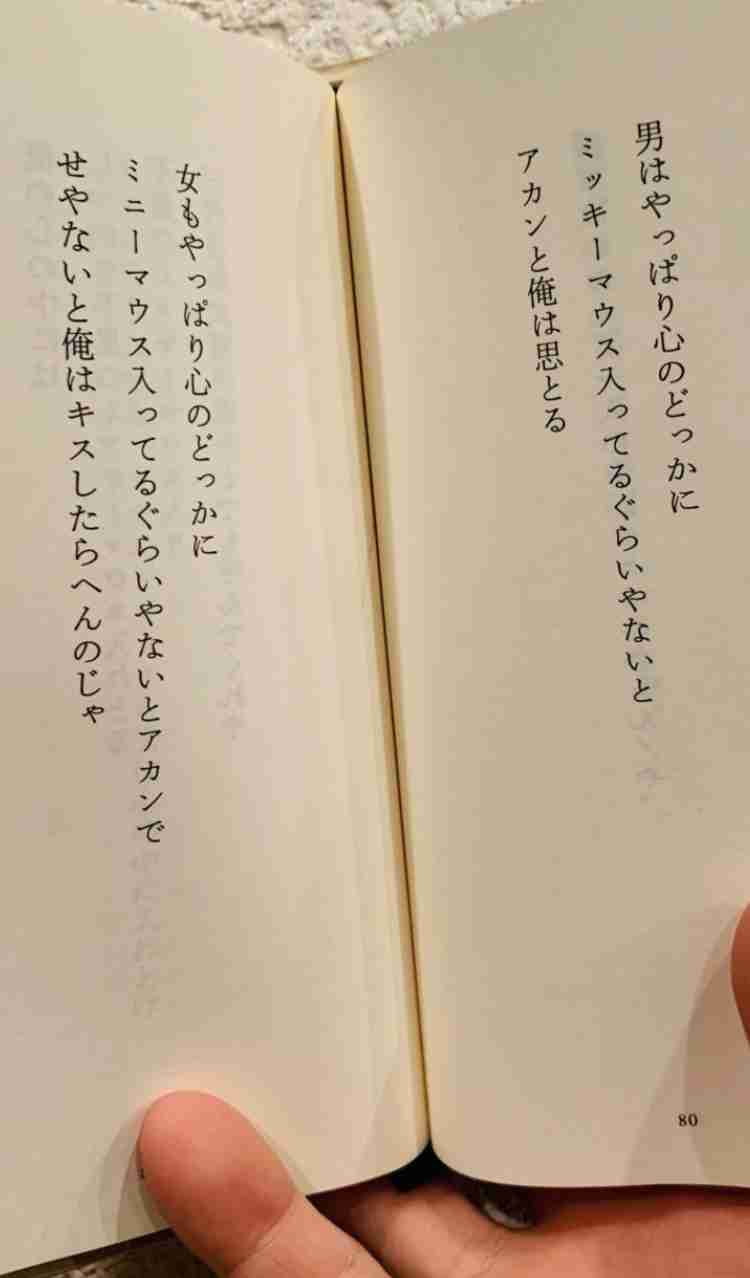 男はやっぱり心のどっかに
ミッキーマウス入ってるぐらいやないと
アカンと俺は思とる
80
女もやっぱり心のどっかに
ミニーマウス入ってるぐらいやないとアカンで
せやないと俺はキスしたらへんのじゃ